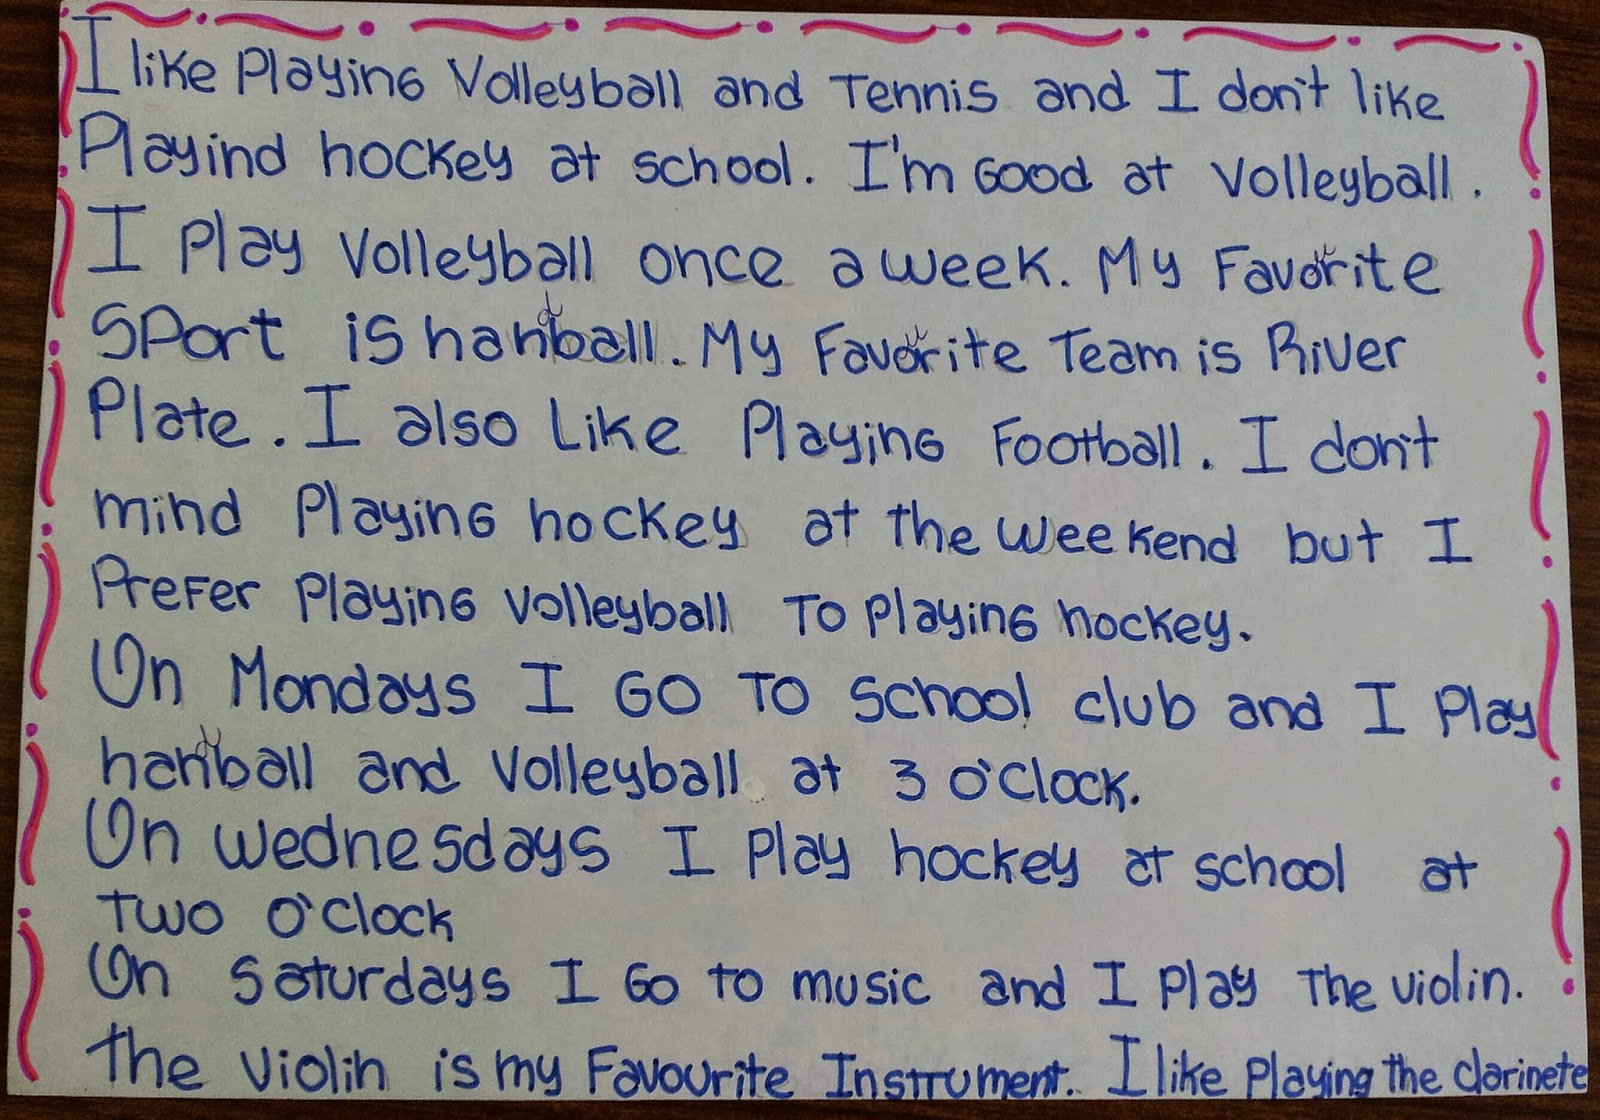 I like Playing Volleyball and Tennis and I don't like
Playind hockey at school. I'm Good at Volleyball.
I Play Volleyball once a week. My Favourite
Sport is handball. My Favourite Team is River
Plate. I also Like Playing Football. I don't
mind Playing hockey at the weekend but I
Prefer Playing Volleyball To Playing hockey.
On Mondays I Go To School club and I Play
handball and Volleyball at 3 o'clock.
On Wednesdays I Play hockey at school at
Two o'clock
On Saturdays I Go to music and I Play The violin.
The violin is my Favourite Instrument. I like Playing the clarinete